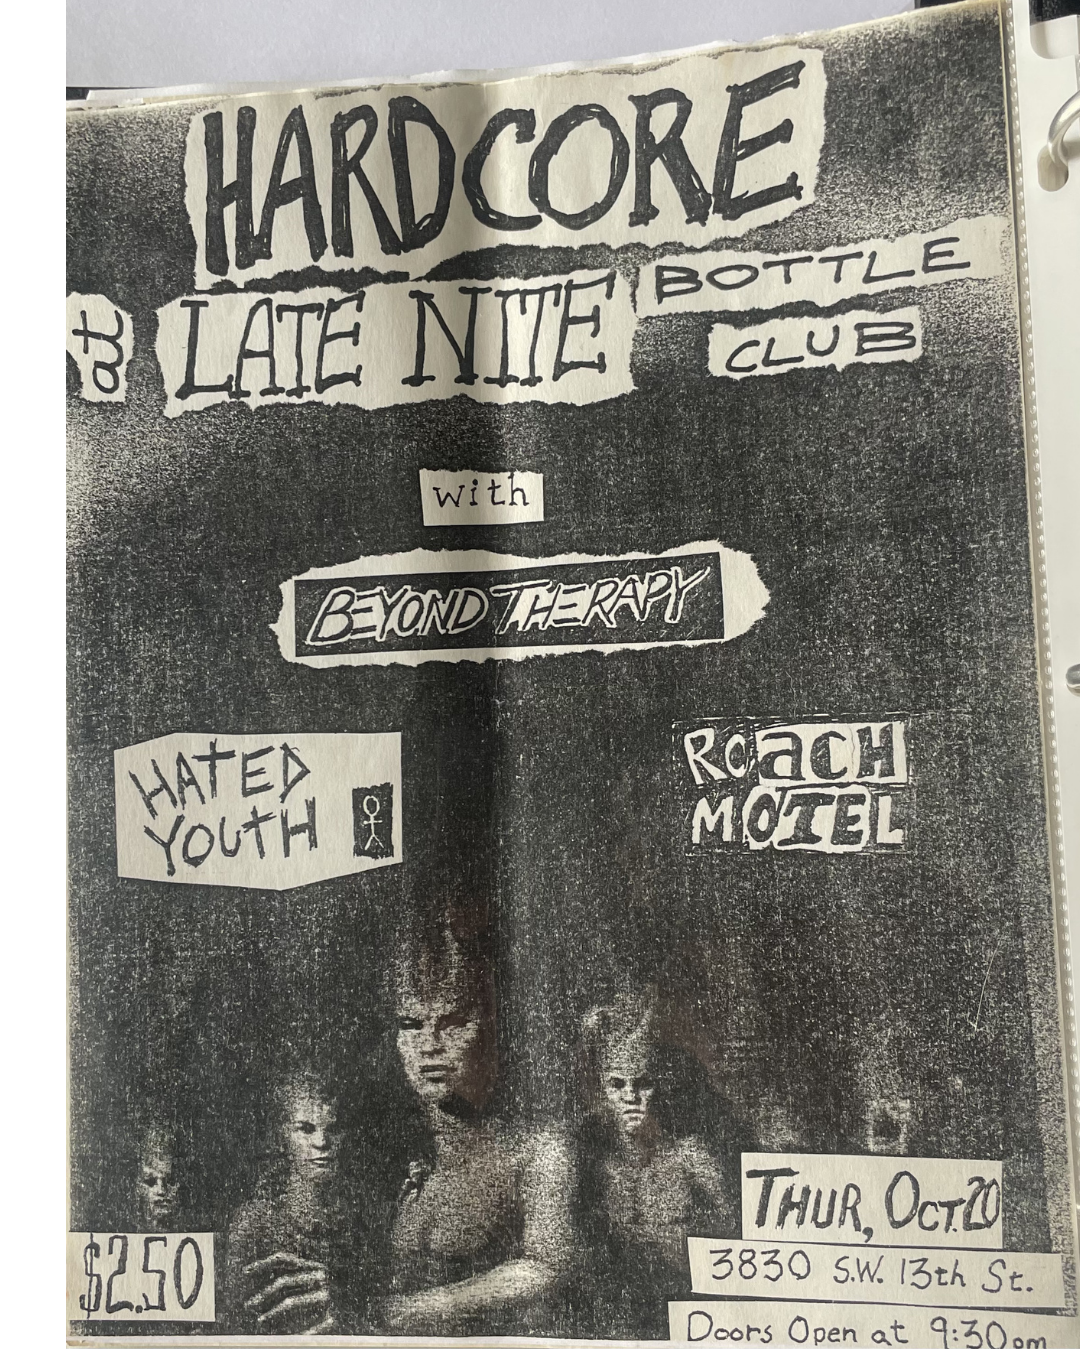 HARDCORE
at LATE NITE BOTTLE
CLUB
with
BEYOND THERAPY
HATED
YOUTH
ROACH
MOTEL
$2.50
THUR, OCT. 20
3830 S.W. 13th St.
Doors Open at 9:30 pm